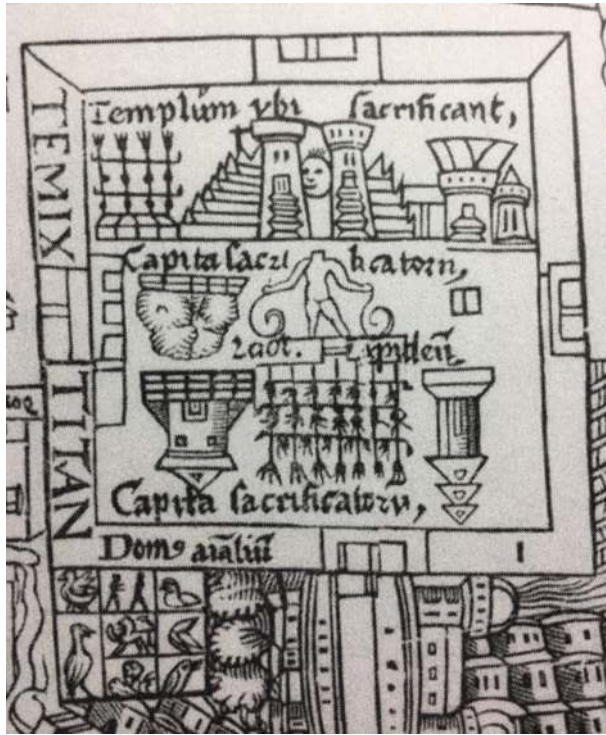 TEMIX
TITAN
Templũm vbi sacrificant,
Capita sacri ficatorũ,
lapideũ
Capita sacrificatorũ,
Domꝰ aĩaliũ